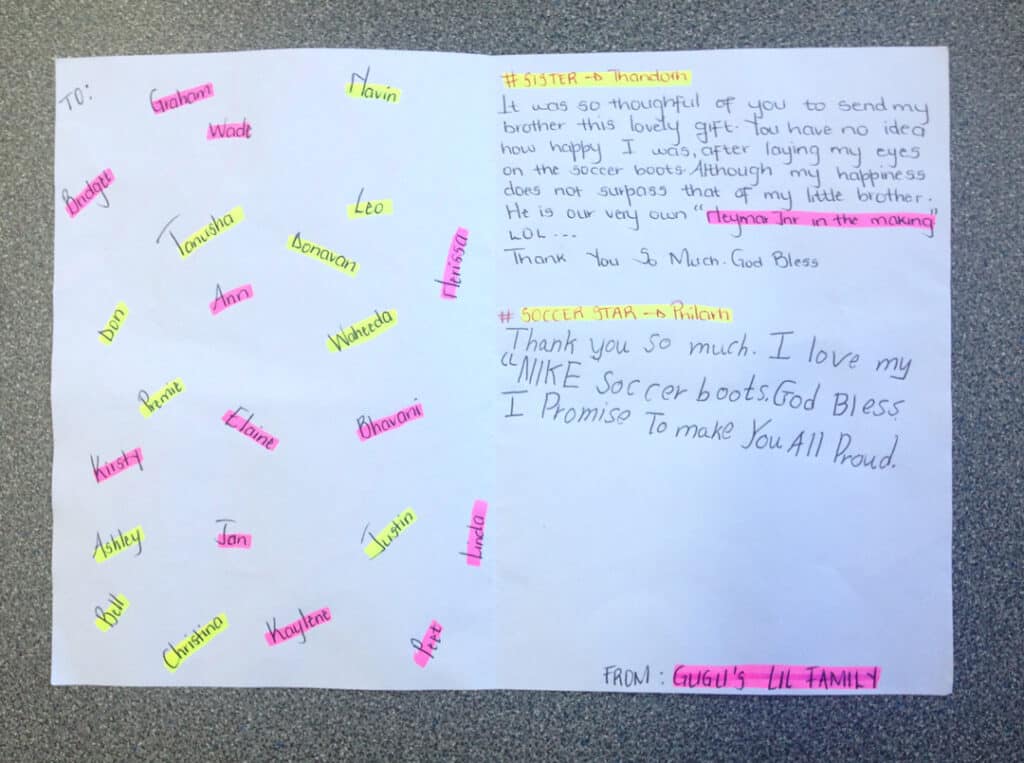 TO:
Graham
Mavin
Wade
Bridget
Tanusha
Leo
Donavan
Nerissa
Ann
Don
Waheeda
Premie
Elaine
Bhavani
Kirsty
Ashley
Jan
Justin
Linda
Bell
Christina
Kaylene
Peet
# SISTER → Thandoth
It was so thoughtful of you to send my
brother this lovely gift. You have no idea
how happy I was, after laying my eyes
on the soccer boots. Although my happiness
does not surpass that of my little brother.
He is our very own "Neymar Jnr in the making"
LOL...
Thank You So Much. God Bless
# SOCCER STAR → Philarh
Thank you so much. I love my
"NIKE Soccer boots. God Bless
I Promise To make You All Proud.
FROM: GUGU'S LIL FAMILY